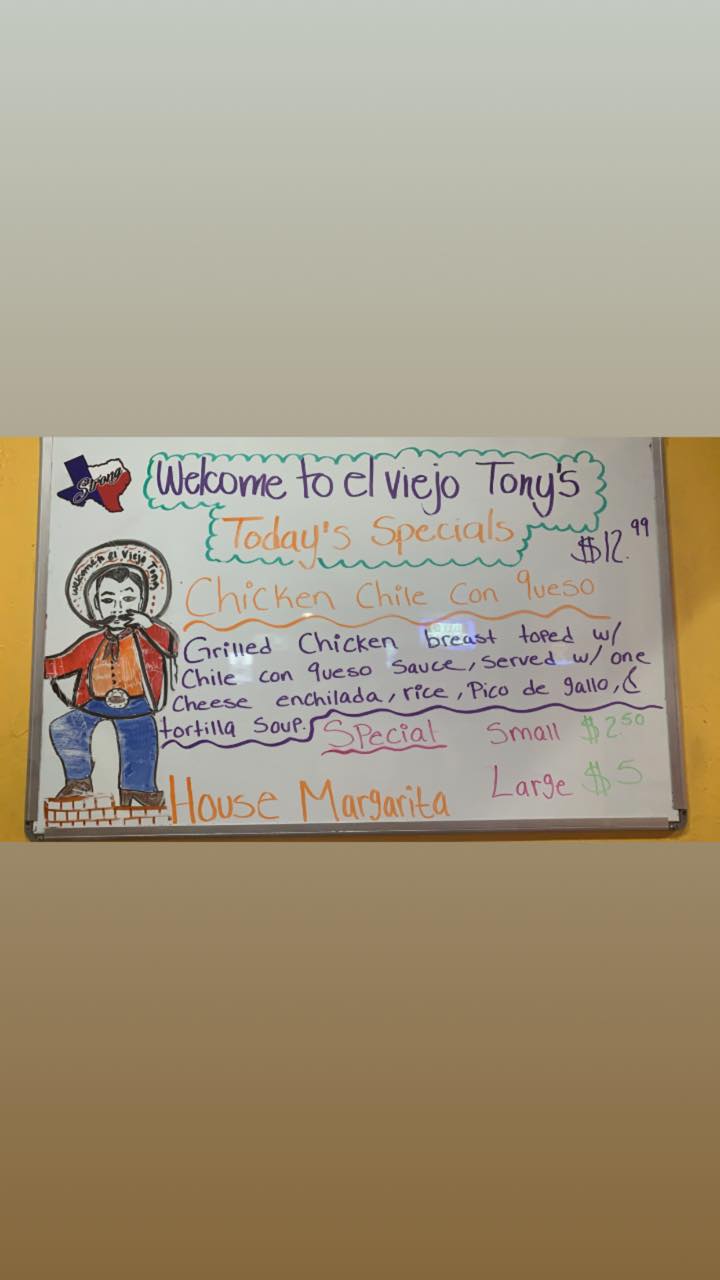 Strong
Welcome to el viejo Tony's
Today's Specials
$12.99
welcome to el Viejo Tony's
Chicken Chile Con queso
Grilled Chicken breast toped w/
Chile con queso Sauce, served w/ one
Cheese enchilada, rice, Pico de gallo, &
tortilla Soup.
Special Small $2.50
House Margarita Large $5